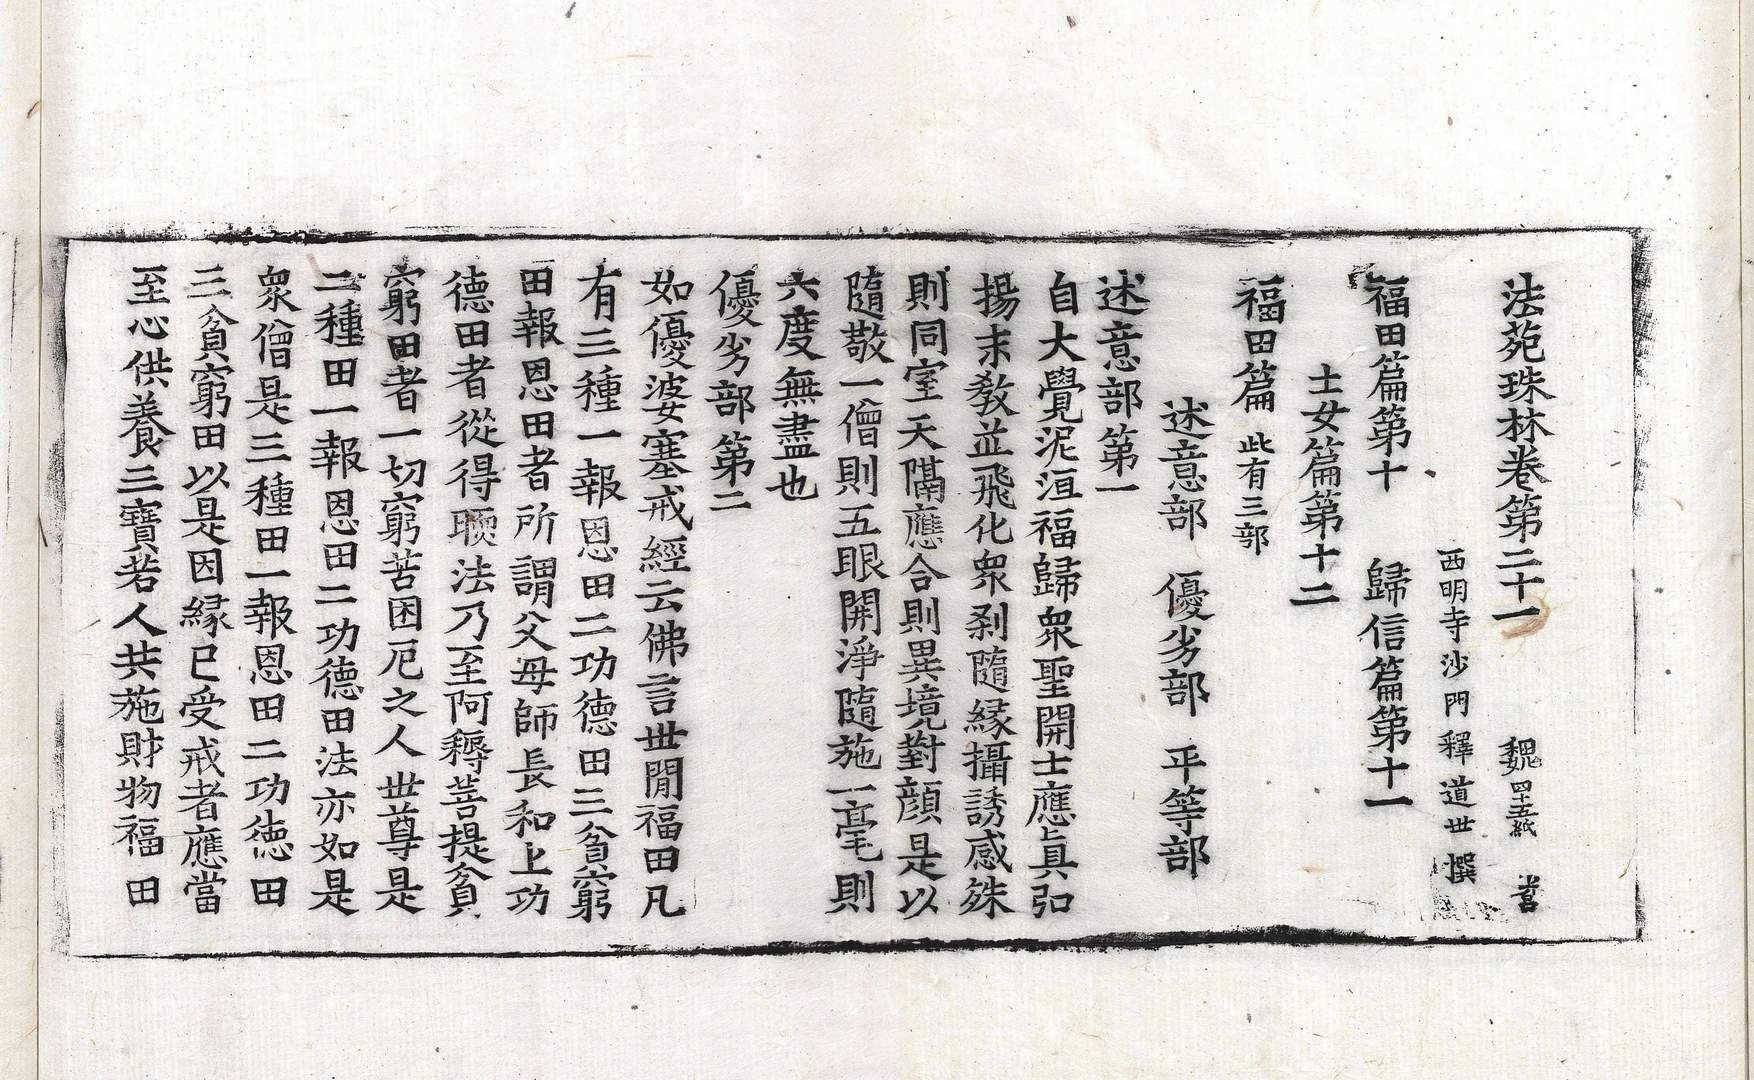 法苑珠林卷第二十一　魏　四十五紙　䒭
西明寺沙門釋道世撰
福田篇第十　歸信篇第十一
士女篇第十二
福田篇　此有三部
述意部　優劣部　平等部
述意部第一
自大覺泥洹福歸衆聖開士應眞弘
揚末教並飛化衆刹隨緣攝誘感殊
則同室天隔應合則異境對顔是以
隨敬一僧則五眼開淨隨施一毫則
六度無盡也
優劣部第二
如優婆塞戒經云佛言世間福田凡
有三種一報恩田二功德田三貧窮
田報恩田者所謂父母師長和上功
德田者從得㬉法乃至阿耨菩提貧
窮田者一切窮苦困厄之人世尊是
二種田一報恩田二功德田法亦如是
衆僧是三種田一報恩田二功德田
三貧窮田以是因緣已受戒者應當
至心供養三寶若人共施財物福田